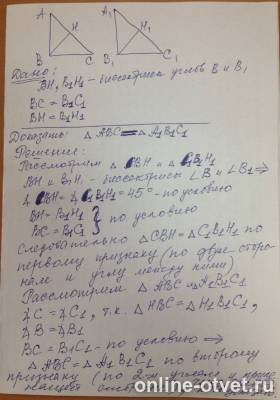 A A₁
H H₁
B C B₁ C₁
Дано:
BH, B₁H₁ - биссектриса углов B и B₁
BC = B₁C₁
BH = B₁H₁
Доказать: △ABC = △A₁B₁C₁
Решение:
Рассмотрим △CBH и △C₁B₁H₁
BH и B₁H₁ - биссектрисы ∠B и ∠B₁ ⇒
∠CBH = ∠C₁B₁H₁ = 45° - по условию
BH = B₁H₁
BC = B₁C₁ } по условию
Следовательно △CBH = △C₁B₁H₁ по
первому признаку (по двум сторо-
нам и углу между ними)
Рассмотрим △ABC и △A₁B₁C₁
∠C = ∠C₁, т.к. △HBC = △H₁B₁C₁,
∠B = ∠B₁
BC = B₁C₁ - по условию ⇒
△ABC = △A₁B₁C₁ по второму
признаку (по 2-м углам и
online-otvet.ru